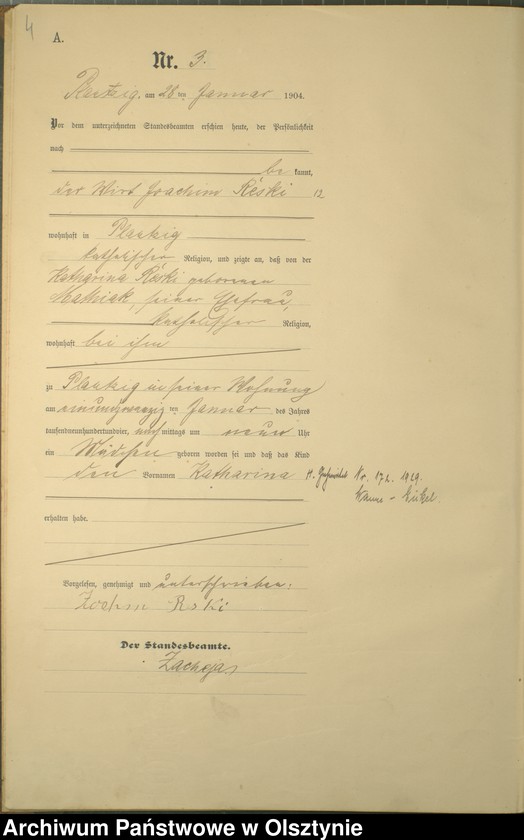 4
A.
Nr. 3.
Plautzig, am 26 ten Januar 1904.
Vor dem unterzeichneten Standesbeamten erschien heute, der Persönlichkeit
nach
be kannt,
der Wirt Joachim Reski 12
wohnhaft in Plautzig
katholischer Religion, und zeigte an, daß von der
Katharina Reski geborenen
Mathiak, seiner Ehefrau,
katholischer Religion,
wohnhaft bei ihm
zu Plautzig in seiner Wohnung
am einundzwanzig ten Januar des Jahres
tausendneunhundertundvier, nachmittags um neun Uhr
ein Mädchen geboren worden sei und daß das Kind
den Vornamen Katharina
H. Nr. 172. 1929.
Wanne - Eickel.
erhalten habe.
Vorgelesen, genehmigt und unterschrieben:
Der Standesbeamte.
Archiwum Państwowe w Olsztynie